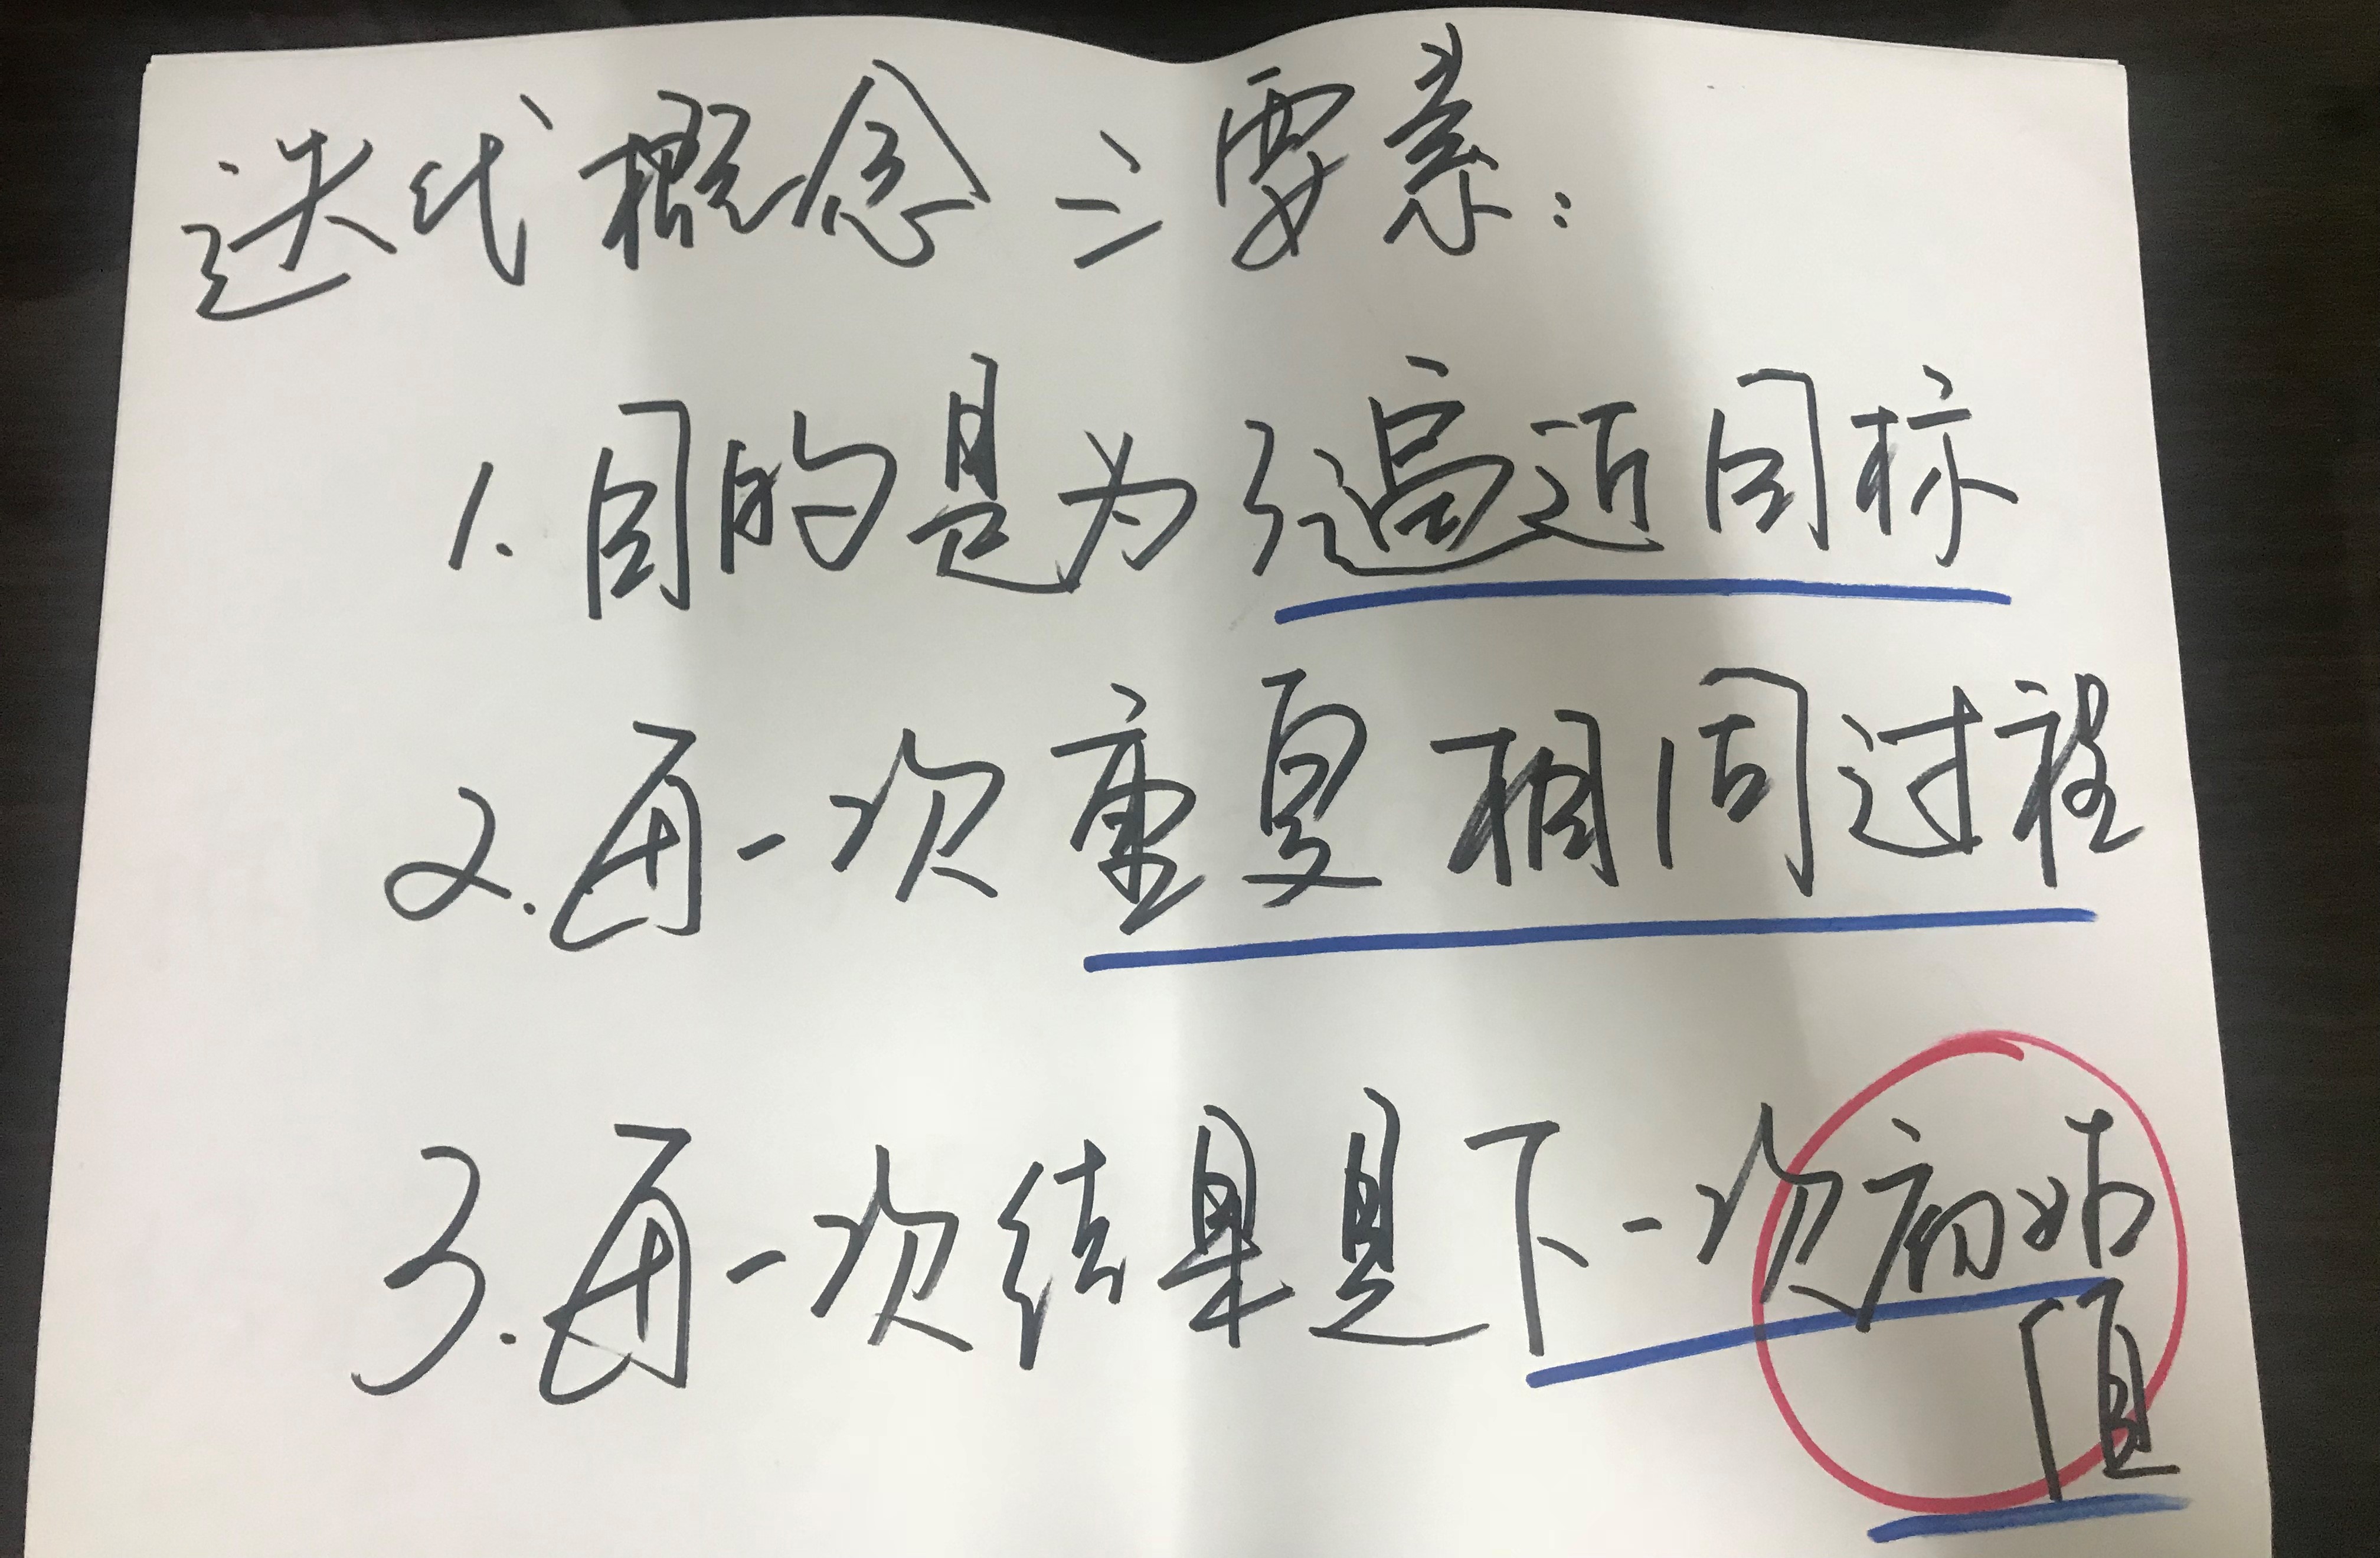 迭代概念三要素:
1.目的是为了逼近目标
2.每一次重复相同过程
3.每一次结果是下一次初始
值